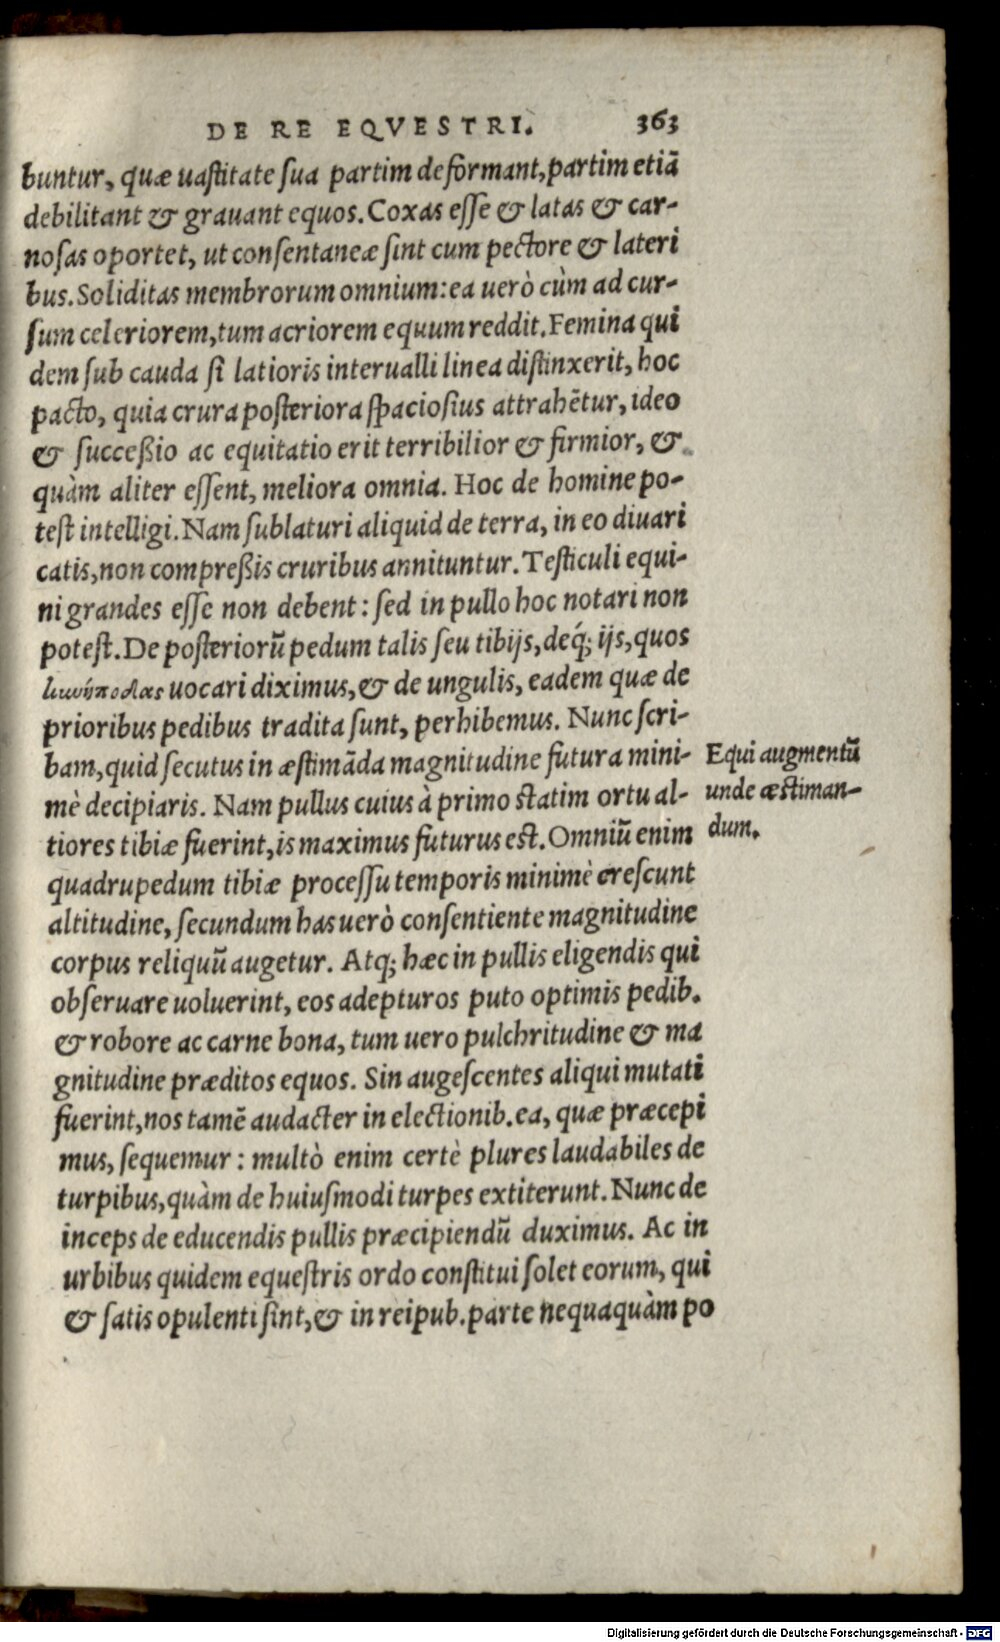 DE RE EQVESTRI. 363
buntur, quæ uaſtitate ſua partim deformant, partim etiã
debilitant & grauant equos. Coxas eſſe & latas & car-
noſas oportet, ut conſentaneæ ſint cum pectore & lateri
bus. Soliditas membrorum omnium: ea uerò cùm ad cur-
ſum celeriorem, tum acriorem equum reddit. Femina qui
dem ſub cauda ſi latioris interualli linea diſtinxerit, hoc
pacto, quia crura poſteriora ſpacioſius attrahẽtur, ideo
& ſucceßio ac equitatio erit terribilior & firmior, &
quàm aliter eſſent, meliora omnia. Hoc de homine po-
teſt intelligi. Nam ſublaturi aliquid de terra, in eo diuari
catis, non compreßis cruribus annituntur. Teſticuli equi-
ni grandes eſſe non debent: ſed in pullo hoc notari non
poteſt. De poſteriorũ pedum talis ſeu tibijs, deq́; ijs, quos
κυνήποδας uocari diximus, & de ungulis, eadem quæ de
prioribus pedibus tradita ſunt, perhibemus. Nunc ſcri-
bam, quid ſecutus in æſtimãda magnitudine futura mini-
mè decipiaris. Nam pullus cuius à primo ſtatim ortu al-
tiores tibiæ fuerint, is maximus futurus eſt. Omniũ enim
quadrupedum tibiæ proceſſu temporis minimè creſcunt
altitudine, ſecundum has uerò conſentiente magnitudine
corpus reliquũ augetur. Atq; hæc in pullis eligendis qui
obſeruare uoluerint, eos adepturos puto optimis pedib.
& robore ac carne bona, tum uero pulchritudine & ma
gnitudine præditos equos. Sin augeſcentes aliqui mutati
fuerint, nos tamẽ audacter in electionib. ea, quæ præcepi
mus, ſequemur: multò enim certè plures laudabiles de
turpibus, quàm de huiuſmodi turpes extiterunt. Nunc de
inceps de educendis pullis præcipiendũ duximus. Ac in
urbibus quidem equeſtris ordo conſtitui ſolet eorum, qui
& ſatis opulenti ſint, & in reipub. parte nequaquàm po
Equi augmentũ
unde æſtiman-
dum.
Digitalisierung gefördert durch die Deutsche Forschungsgemeinschaft - DFG